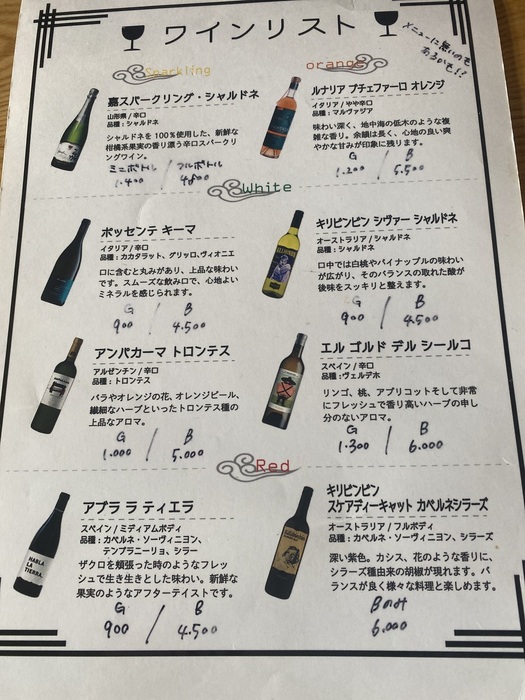 ワインリスト
メニューに無いのも
あるかも!?
Sparkling
嘉スパークリング・シャルドネ
山形県 / 辛口
品種:シャルドネ
シャルドネを 100％使用した、新鮮な
柑橘系果実の香り漂う辛口スパークリ
ングワイン。
ミニボトル / フルボトル
1.400 / 4.800
orange
ルナリア プチェファーロ オレンジ
イタリア / やや辛口
品種:マルヴァジア
味わい深く、地中海の低木のような複
雑な香り。余韻は長く、心地の良い爽
やかな甘みが印象に残ります。
G / B
1.200 / 5.500
White
ポッセンテ キーマ
イタリア / 辛口
品種:カタラット、グリッロ、ヴィオニエ
口に含むと丸みがあり、上品な味わい
です。スムーズな飲み口で、心地よい
ミネラルを感じられます。
G / B
900 / 4.500
キリビンビン シヴァー シャルドネ
オーストラリア / シャルドネ
品種:シャルドネ
口中では白桃やパイナップルの味わい
が広がり、そのバランスの取れた酸が
後味をスッキリと整えます。
G / B
900 / 4.500
アンパカーマ トロンテス
アルゼンチン / 辛口
品種:トロンテス
バラやオレンジの花、オレンジピール、
繊細なハーブといったトロンテス種の
上品なアロマ。
G / B
1.000 / 5.000
エル ゴルド デル シールコ
スペイン / 辛口
品種:ヴェルデホ
リンゴ、桃、アプリコットそして非常
にフレッシュで香り高いハーブの申し
分のないアロマ。
G / B
1.300 / 6.000
Red
アブラ ラ ティエラ
スペイン / ミディアムボディ
品種:カベルネ・ソーヴィニヨン、
テンプラニーリョ、シラー
ザクロを頬張った時のようなフレッ
シュで生き生きとした味わい。新鮮な
果実のようなアフターテイストです。
G / B
900 / 4.500
HABLA
LA
TIERRA.
キリビンビン
スケアディーキャット カベルネシラーズ
オーストラリア / フルボディ
品種:カベルネ・ソーヴィニヨン、シラーズ
深い紫色。カシス、花のような香りに、
シラーズ種由来の胡椒が現れます。バ
ランスが良く様々な料理と楽しめます。
Bのみ
6.000